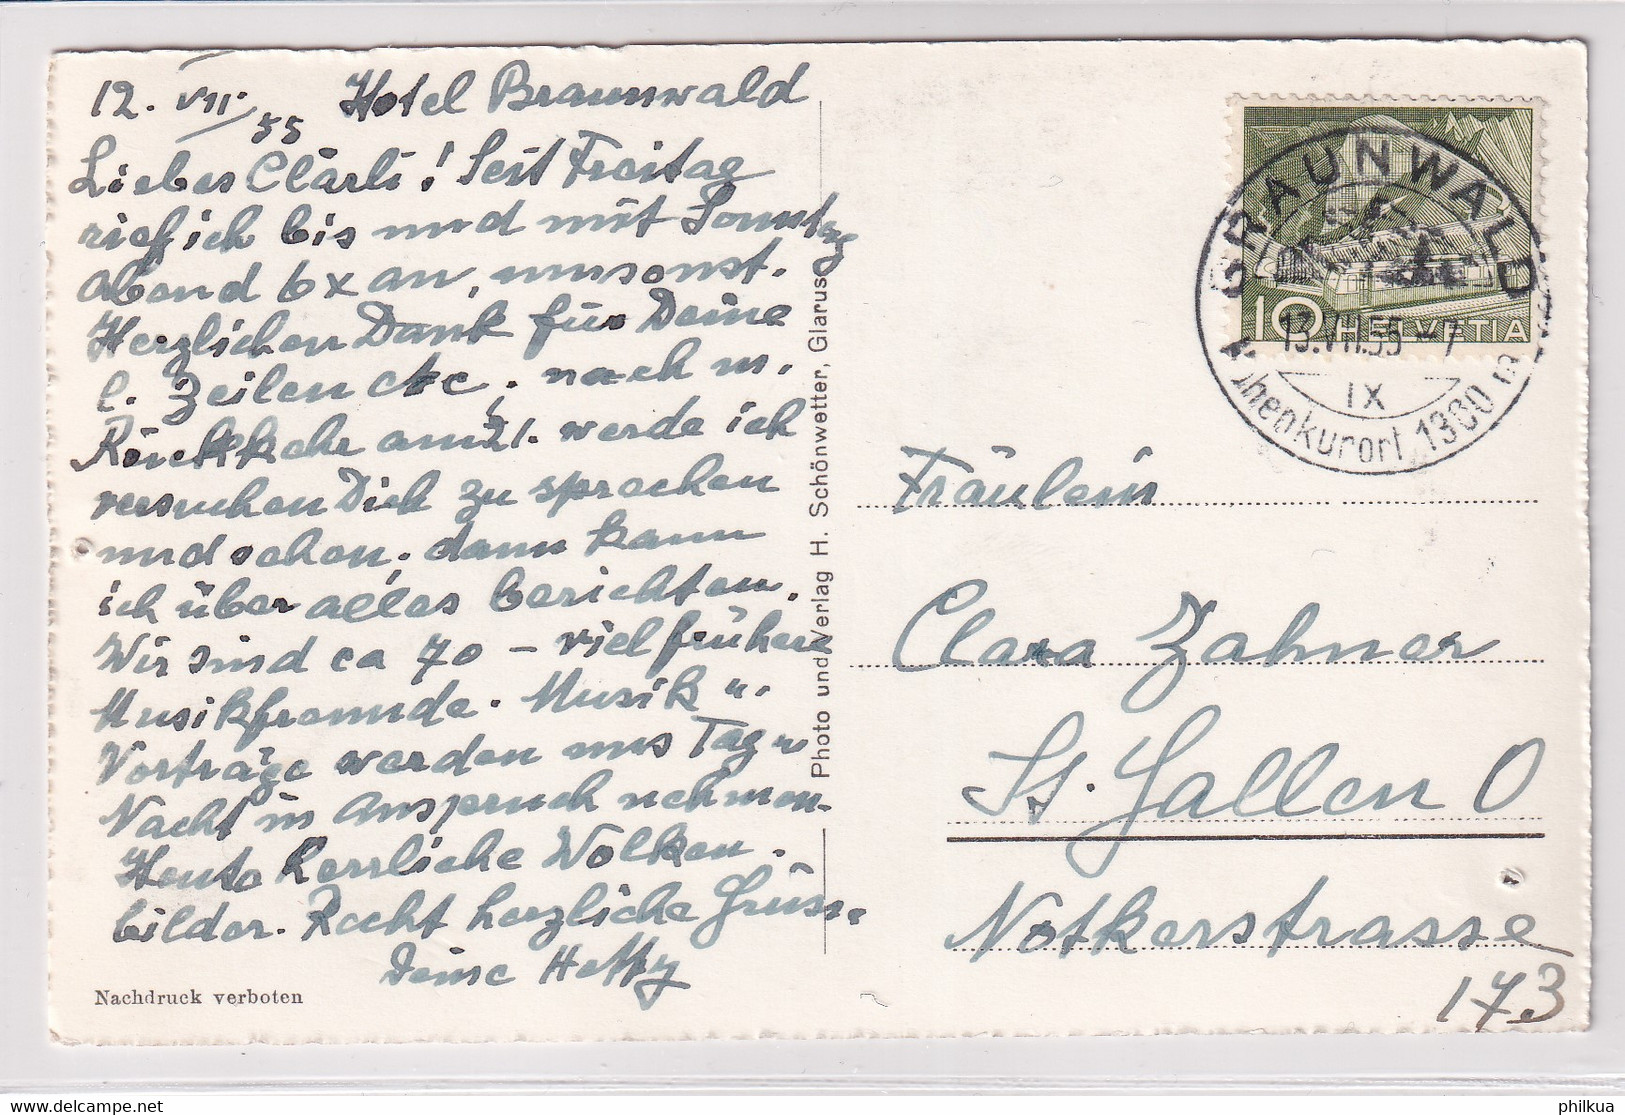 12. VII. 55 Hotel Braunwald
Liebes Clärli! Seit Freitag
rief ich bis und mit Sonntag
abend 6x an, umsonst.
Herzlichen Dank für Deine
l. Zeilen etc. nach m.
Rückkehr am 21. werde ich
versuchen Dich zu sprechen
und sehen, dann kann
ich über alles berichten.
Wir sind ca 70 – viel frühere
Musikfreunde. Musik u.
Vorträge werden uns Tag u
Nacht in Anspruch nehmen.
Heute herrliche Wolken-
bilder. Recht herzliche Grüsse
Deine Hetty
Nachdruck verboten
Photo und Verlag H. Schönwetter, Glarus
BRAUNWALD
13.VII.55 - 7
IX
Höhenkurort 1300 m
10 HELVETIA
Fräulein
Clara Zahner
St. Gallen O
Notkerstrasse
173
philkua